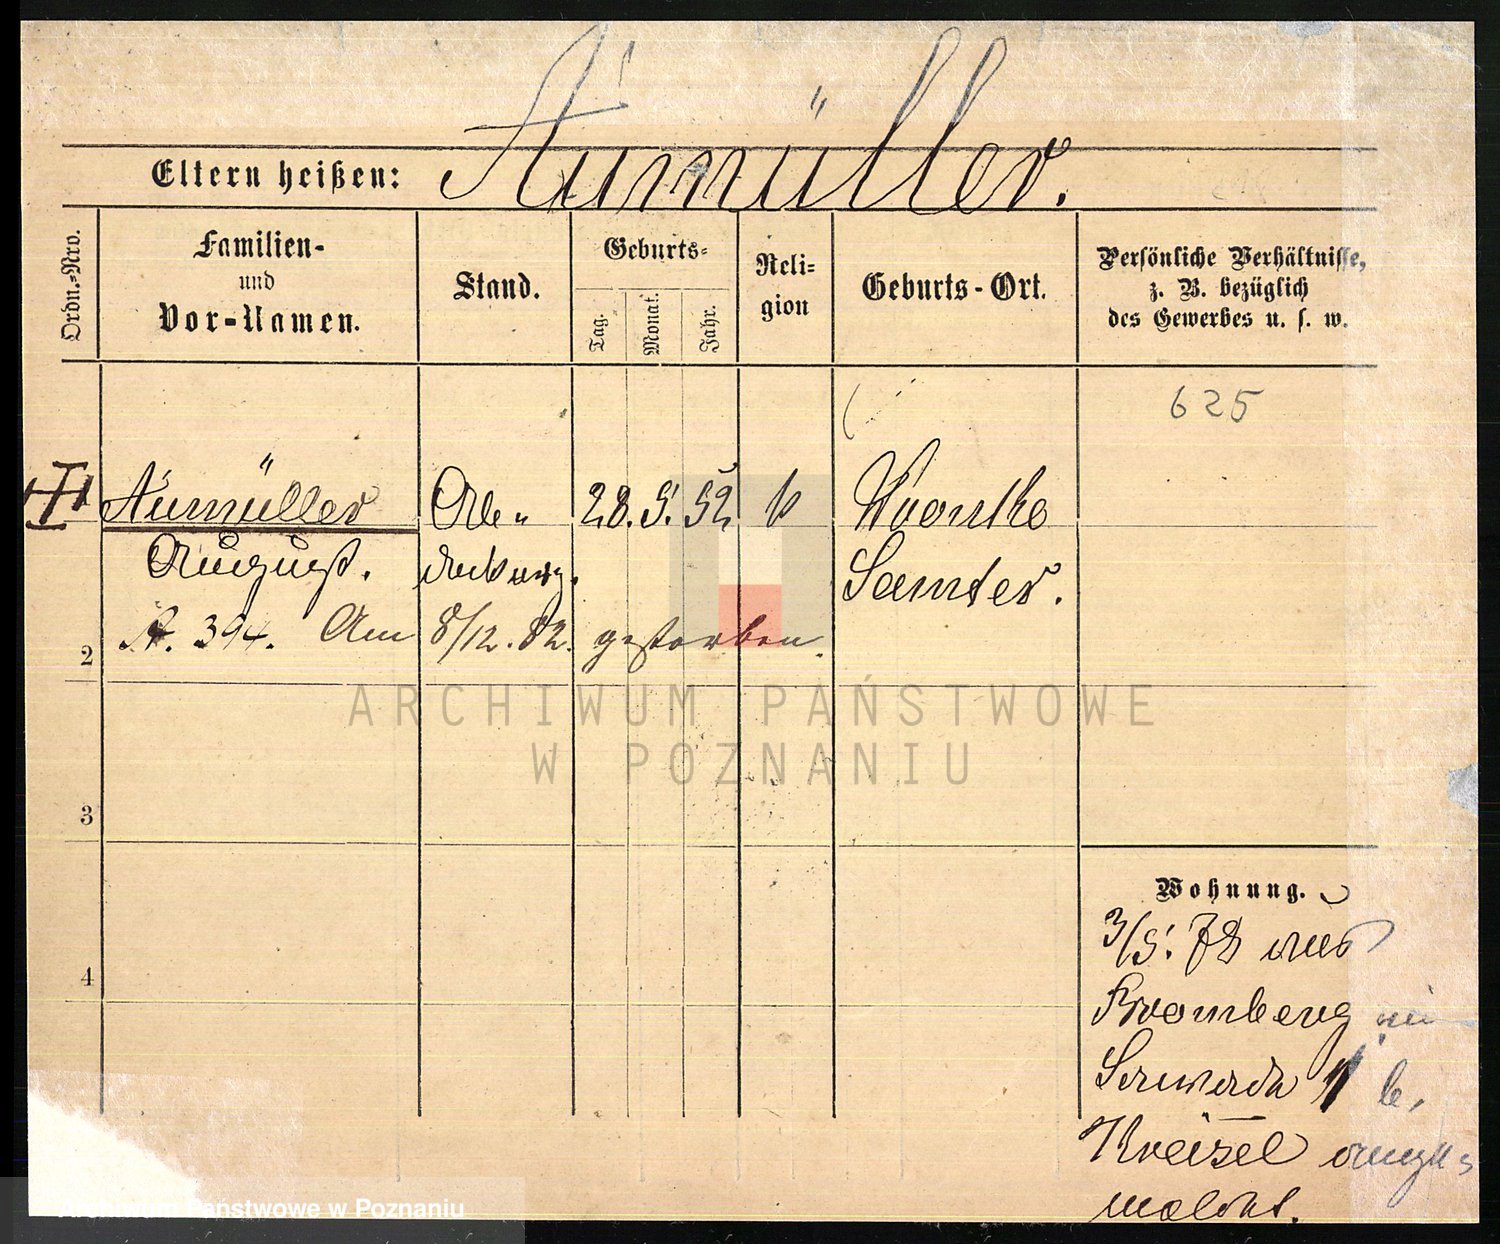 Aumüller.
Eltern heißen:
Ordn.-Nro.
Familien-
und
Vor-Namen.
Stand.
Geburts-
Tag.
Monat.
Jahr.
Reli-
gion
Geburts-Ort.
Persönliche Verhältnisse,
z. B. bezüglich
des Gewerbes u. s. w.
625
Aumüller
August.
28. 5. 52
Wronke
Samter.
A. 394. Am 8/12. 82. gestorben.
2
3
4
Wohnung.
3/5. 78 aus
Bromberg
1 b.
Kreisel
meldet.
ARCHIWUM PAŃSTWOWE
W POZNANIU
Archiwum Państwowe w Poznaniu